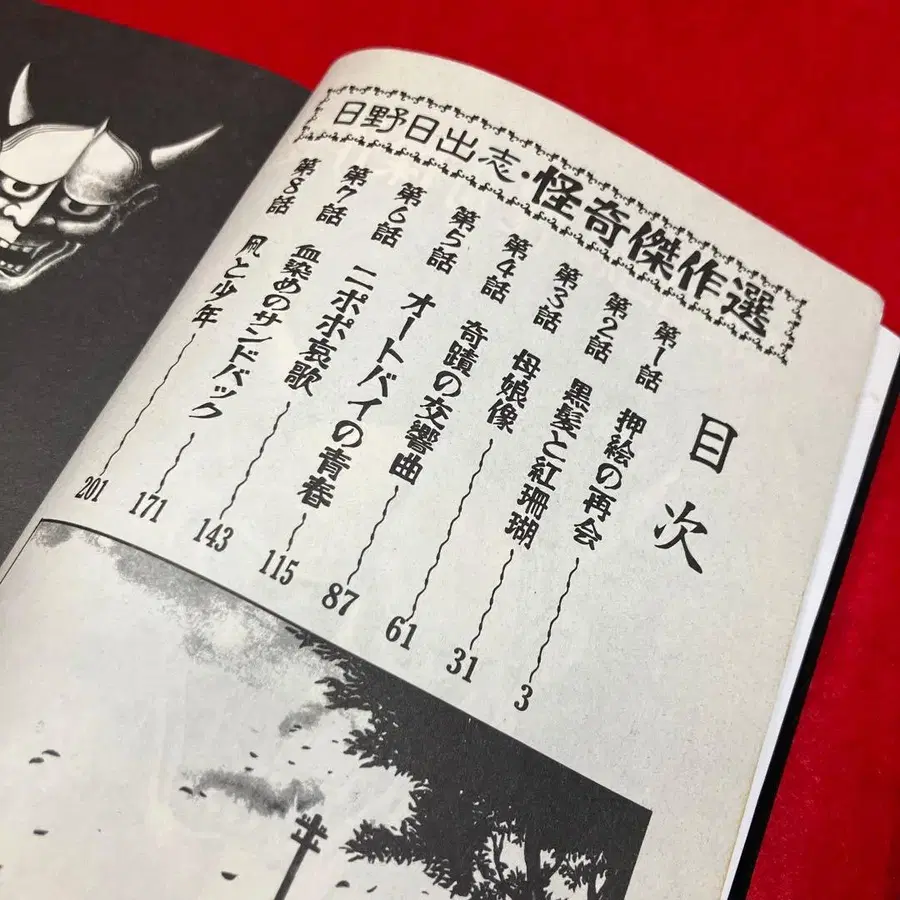 日野日出志・怪奇傑作選
目次
第1話 押絵の再会 3
第2話 黒髪と紅珊瑚 31
第3話 母娘像 61
第4話 奇蹟の交響曲 87
第5話 オートバイの青春 115
第6話 ニポポ哀歌 143
第7話 血染めのサンドバック 171
第8話 風と少年 201